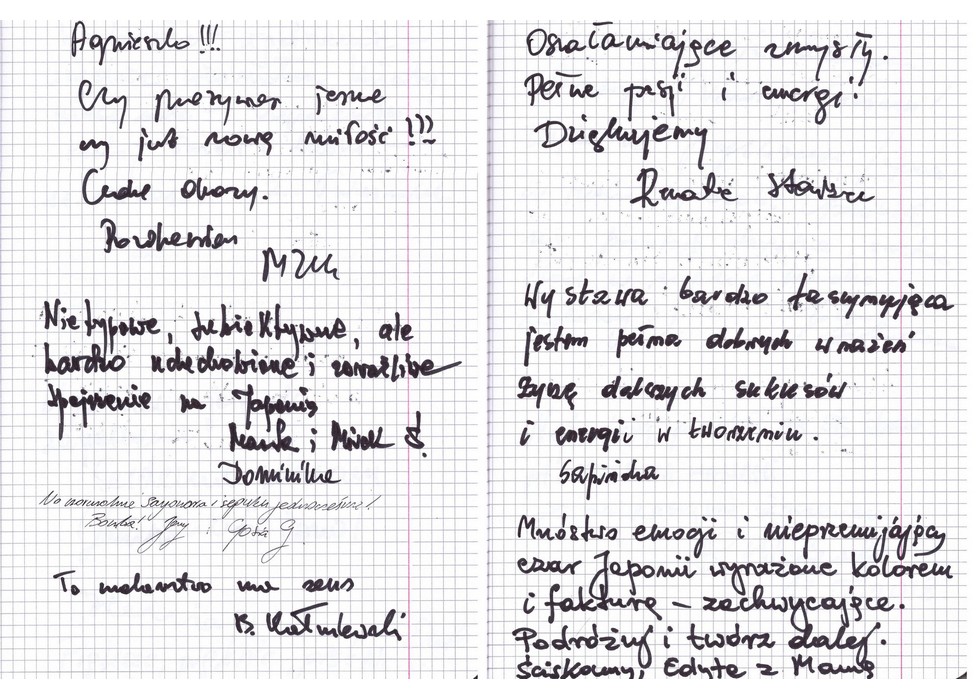 Agnieszko !!!
Czy przeżywasz jeszcze
czy już nową miłość !??
Cudne obrazy.
Pozdrawiam
Nietypowe, subiektywne, ale
bardzo uduchowione i wrażliwe
spojrzenie na Japonię
Marek i Mirek
Dominika
No normalnie Sayonara i sepuku jednocześnie!
Bomba! Jerzy i Gosia G.
To malarstwo ma sens
B.
Oszałamiające zmysły.
Pełne pasji i energi!
Dziękujemy
Renata
Wystawa bardzo fascynująca
jestem pełna dobrych wrażeń
Życzę dalszych sukcesów
i energii w tworzeniu.
Mnóstwo emocji i nieprzemijający
czar Japonii wyrażone kolorem
i fakturą – zachwycające.
Podróżuj i twórz dalej.
Ściskamy, Edyta z Mamą